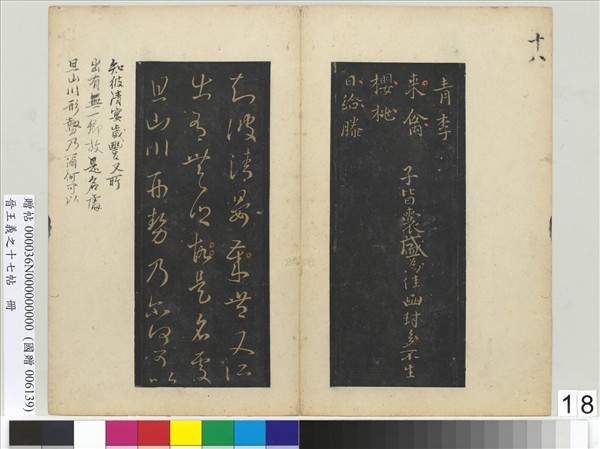 十八
青李
來禽
櫻桃
日給滕
子皆囊盛為佳函封多不生
知彼清晏歲豐又所
出有無一鄉故是名處
且山川形勢乃爾何可以
知彼清宴歲豐又所
出有無一鄉故是名處
且山川形勢乃爾何可以
贈帖 000036N000000000 (國贈 006139)
晉王羲之十七帖 冊
18